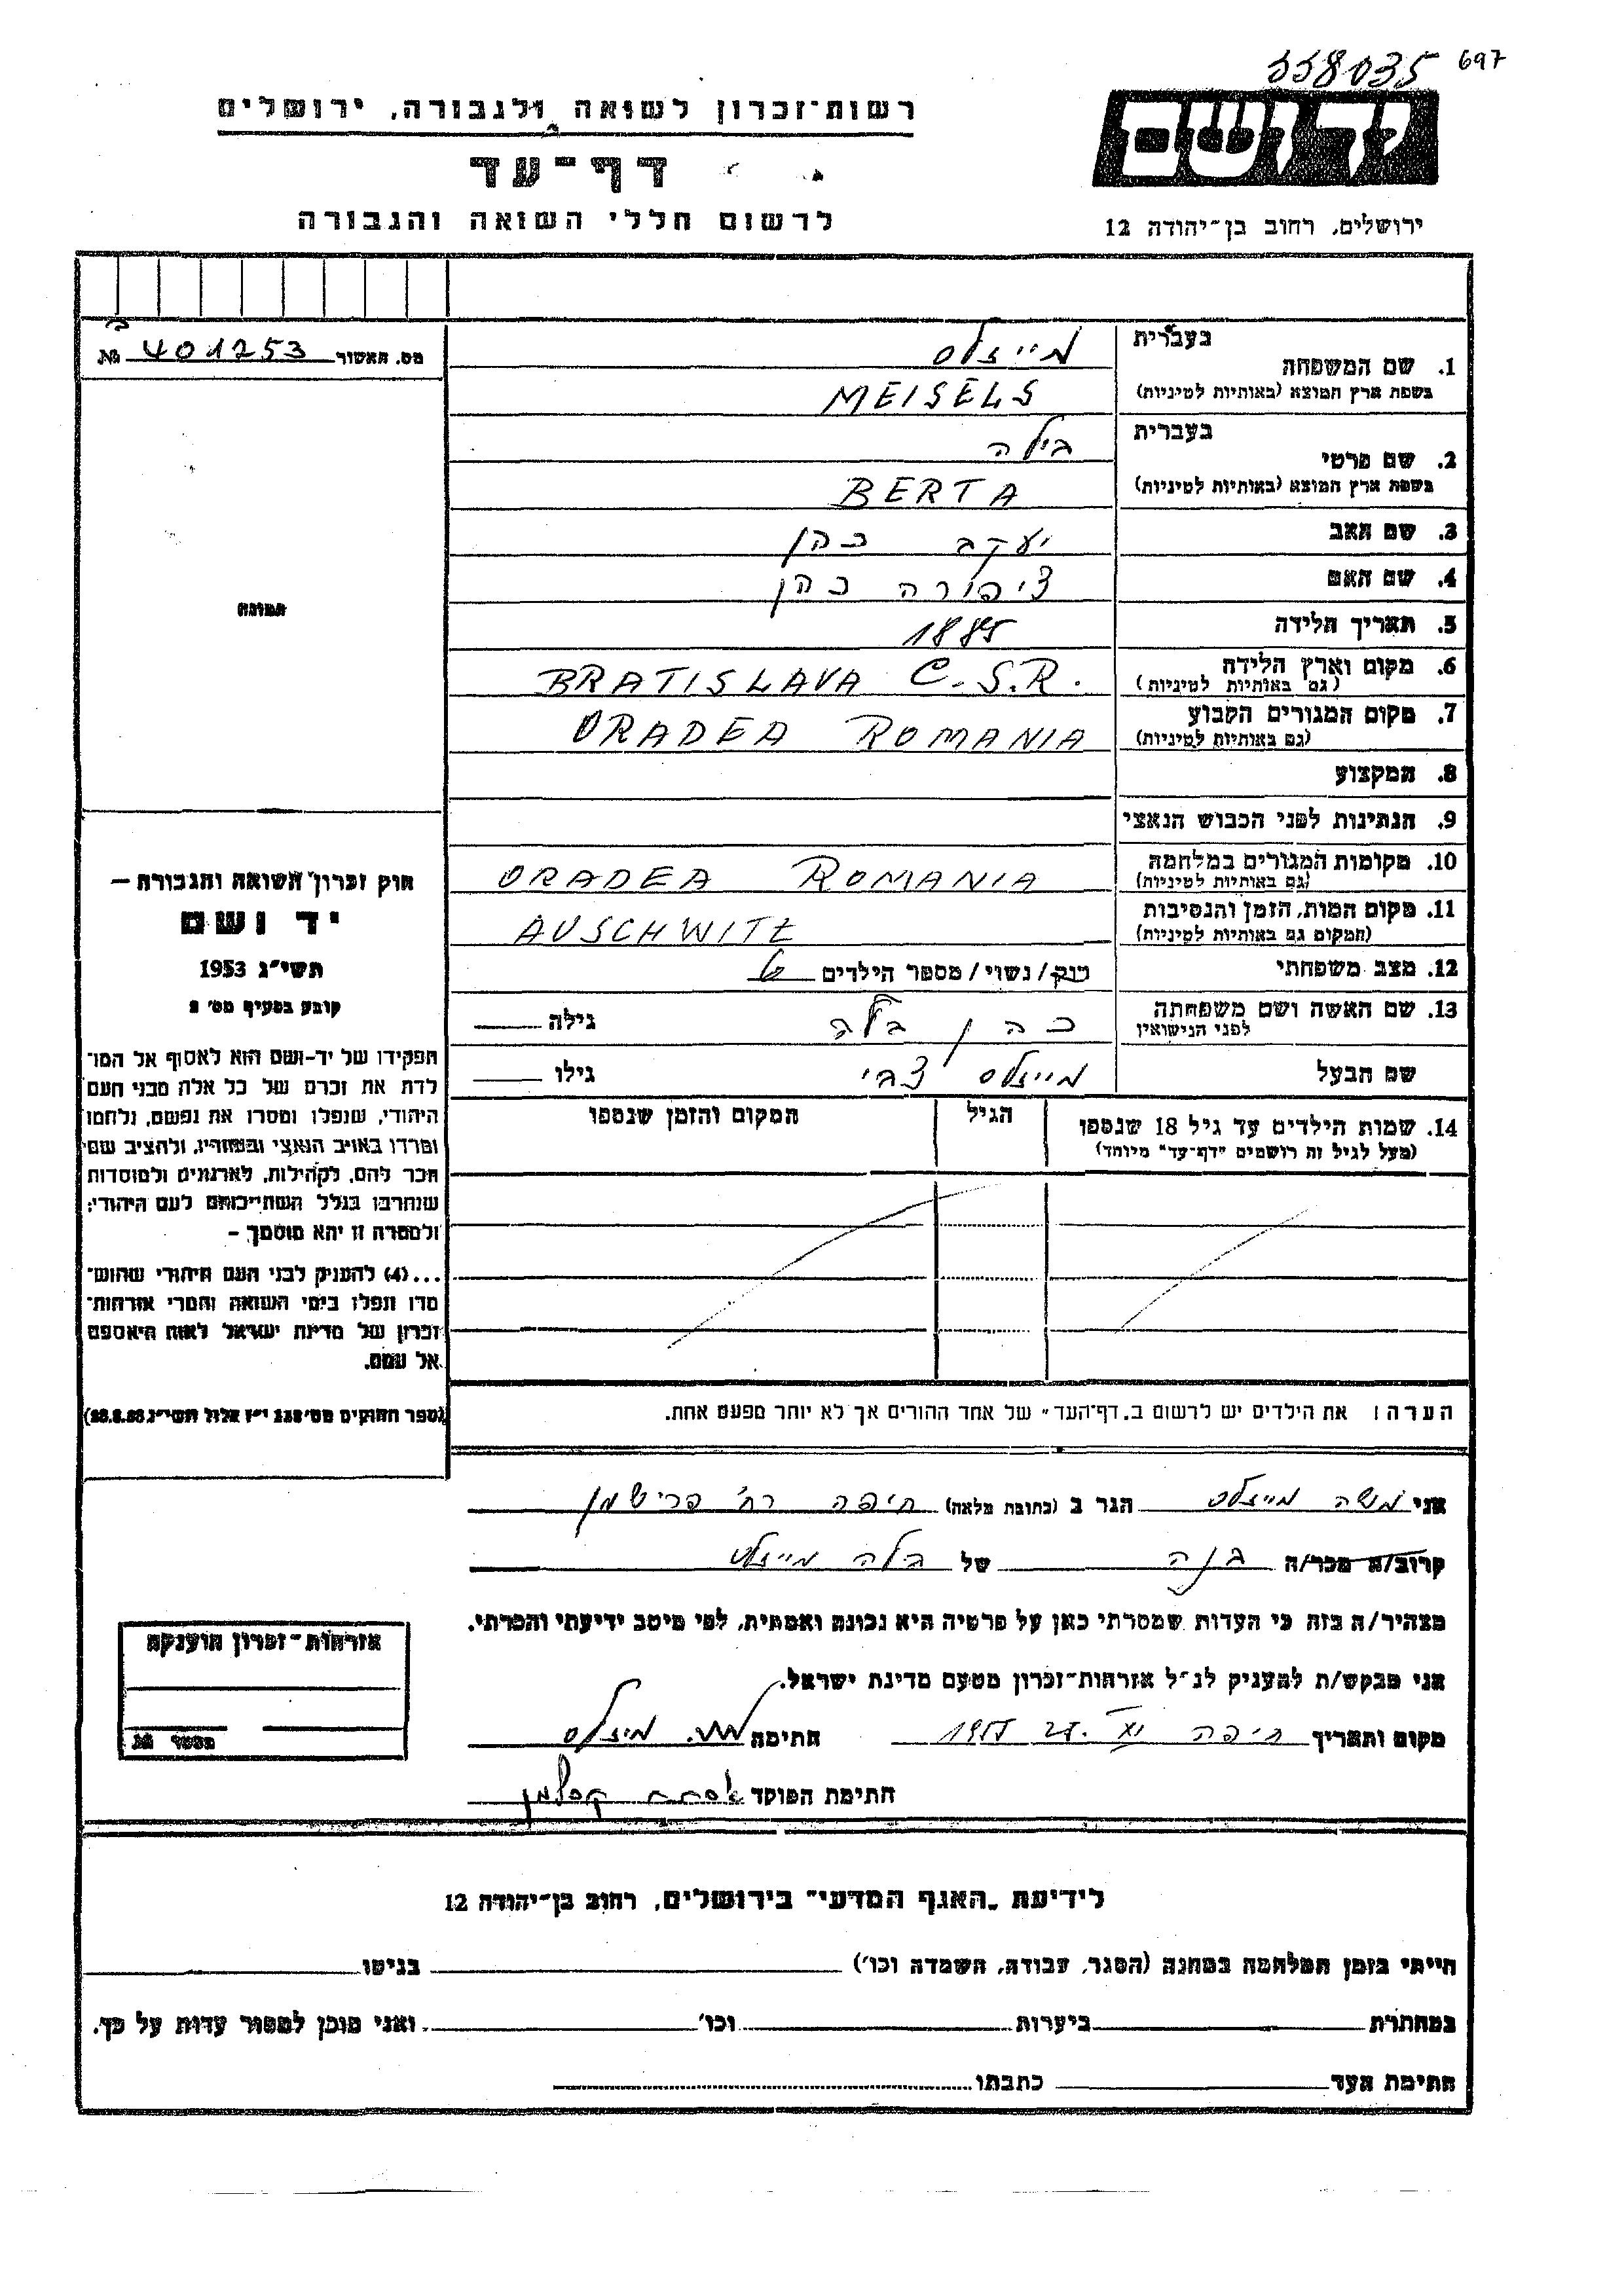 338035 697
רשות־זכרון לשואה ולגבורה, ירושלים
דף־עד
לרשום חללי השואה והגבורה
יד ושם
ירושלים, רחוב בן־יהודה 12
מס. האשור 401253 №
תמונה
חוק זכרון השואה והגבורה —
יד ושם
תשי״ג 1953
קובע בסעיף מס׳ 2
תפקידו של יד-ושם הוא לאסוף אל המו־
לדת את זכרם של כל אלה מבני העם
היהודי, שנפלו ומסרו את נפשם, נלחמו
ומרדו באויב הנאצי ובעוזריו, ולהציב שם
וזכר להם, לקהילות, לארגונים ולמוסדות
שנחרבו בגלל השתייכותם לעם היהודי;
ולמטרה זו יהא מוסמך —
...(4) להעניק לבני העם היהודי שהוש־
מדו ונפלו בימי השואה והמרי אזרחות־
זכרון של מדינת ישראל לאות היאספם
אל עמם.
1. שם המשפחה
בעברית מייזלס
בשפת ארץ המוצא (באותיות לטיניות) MEISELS
2. שם פרטי
בעברית בילה
בשפת ארץ המוצא (באותיות לטיניות) BERTA
3. שם האב יעקב כהן
4. שם האם ציפורה כהן
5. תאריך הלידה 1885
6. מקום וארץ הלידה BRATISLAVA C.S.R.
(גם באותיות לטיניות)
7. מקום המגורים הקבוע ORADEA ROMANIA
(גם באותיות לטיניות)
8. המקצוע
9. הנתינות לפני הכבוש הנאצי
10. מקומות המגורים במלחמה ORADEA ROMANIA
(גם באותיות לטיניות)
11. מקום המות, הזמן והנסיבות AUSCHWITZ
(המקום גם באותיות לטיניות)
12. מצב משפחתי רוק/נשוי/מספר הילדים
13. שם האשה ושם משפחתה כהן בלה גילה
לפני הנישואין
שם הבעל מייזלס צבי גילו
14. שמות הילדים עד גיל 18 שנספו הגיל המקום והזמן שנספו
(מעל לגיל זה רושמים "דף־עד" מיוחד)
הערה: את הילדים יש לרשום ב„דף־העד" של אחד ההורים אך לא יותר מפעם אחת.
אני משה מייזלס הגר ב (כתובת מלאה) חיפה רח׳ פרישמן
קרוב/ה מכר/ה בנה של בלה מייזלס
מצהיר/ה בזה כי העדות שמסרתי כאן על פרטיה היא נכונה ואמתית, לפי מיטב ידיעתי והכרתי.
אני מבקש/ת להעניק לנ״ל אזרחות־זכרון מטעם מדינת ישראל.
מקום ותאריך חיפה חתימה
חתימת הפוקד
אזרחות־זכרון הוענקה
מספר №
לידיעת „האגף המדעי" בירושלים, רחוב בן־יהודה 12
הייתי בזמן המלחמה במחנה (הסגר, עבודה, השמדה וכו׳) בגיטו
במחתרת ביערות וכו׳ ואני מוכן למסור עדות על כך.
חתימת העד כתבתו